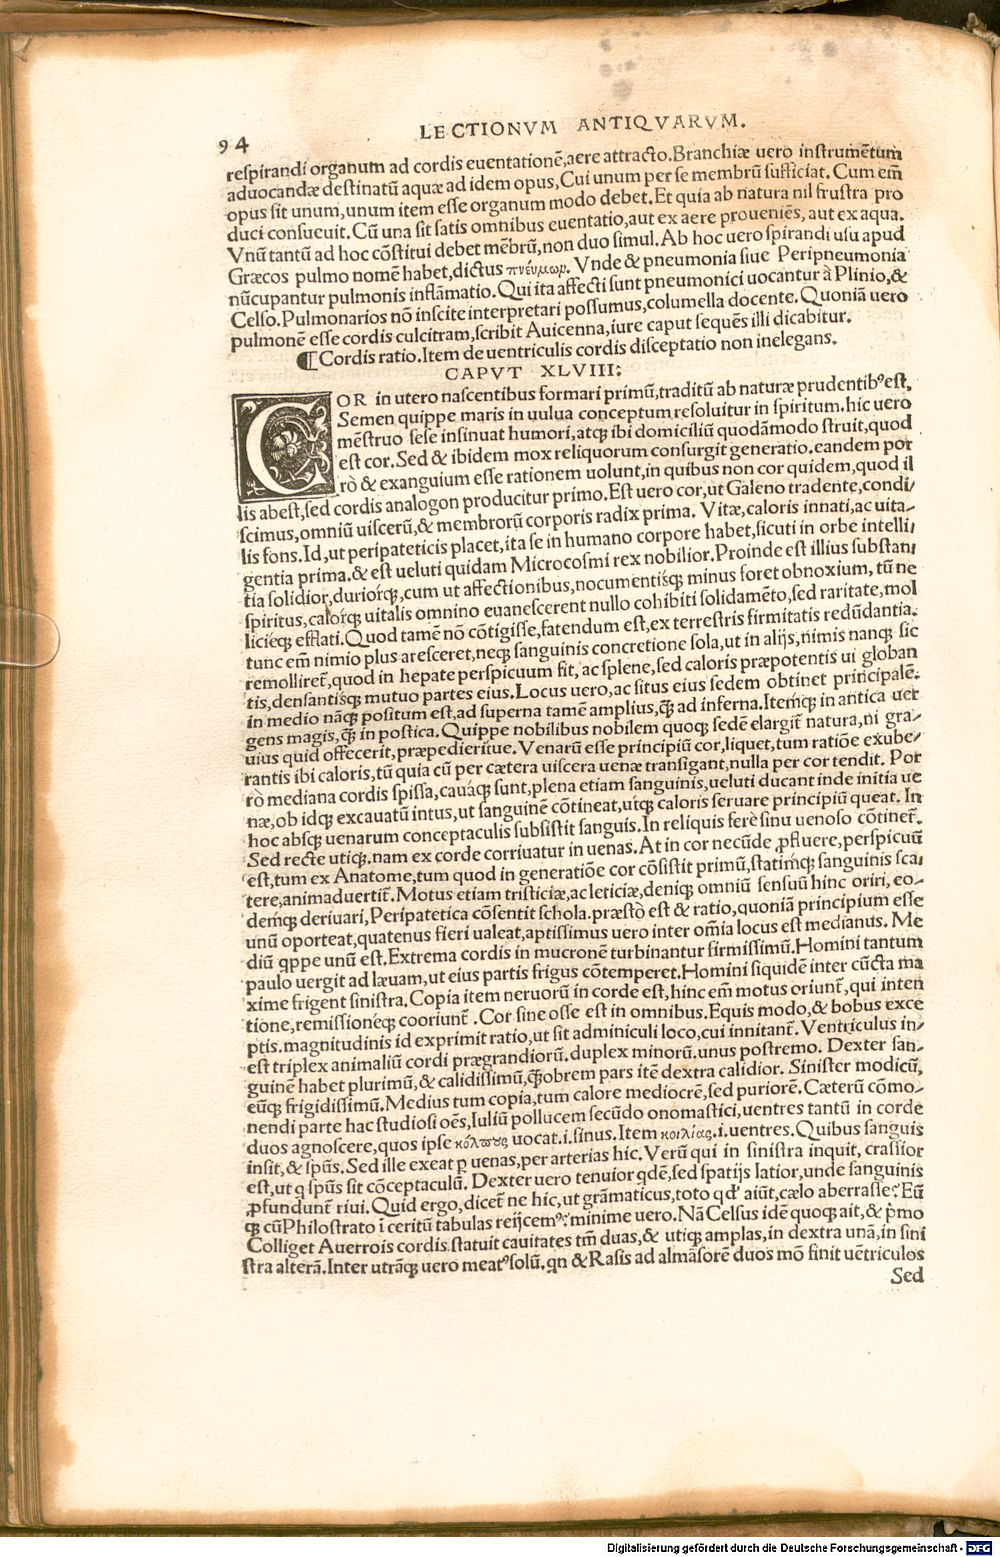 94
LECTIONVM ANTIQVARVM.
respirandi organum ad cordis euentationē,aere attracto.Branchiæ uero instrumētum
aduocandæ destinatū aquæ ad idem opus,Cui unum per se membrū sufficiat. Cum em̄
opus sit unum,unum item esse organum modo debet. Et quia ab natura nil frustra pro
duci consueuit. Cū una sit satis omnibus euentatio,aut ex aere proueniēs, aut ex aqua.
Vnū tantū ad hoc cōstitui debet mēbrū,non duo simul. Ab hoc uero spirandi usu apud
Græcos pulmo nomē habet,dictus πνέυμωρ. Vnde & pneumonia siue Peripneumonia
nūcupantur pulmonis inflāmatio. Qui ita affecti sunt pneumonici uocantur à Plinio,&
Celso.Pulmonarios nō inscite interpretari possumus,columella docente. Quoniā uero
pulmonē esse cordis culcitram,scribit Auicenna,iure caput sequēs illi dicabitur.
¶Cordis ratio.Item de uentriculis cordis disceptatio non inelegans.
CAPVT XLVIII:
COR in utero nascentibus formari primū,traditū ab naturæ prudentibꝰ est.
Semen quippe maris in uulua conceptum resoluitur in spiritum. hic uero
mēstruo sese insinuat humori,atqꝫ ibi domiciliū quodāmodo struit,quod
est cor. Sed & ibidem mox reliquorum consurgit generatio. eandem por
rò & exanguium esse rationem uolunt,in quibus non cor quidem,quod il
lis abest,sed cordis analogon producitur primo. Est uero cor,ut Galeno tradente,condi/
scimus,omniū uiscerū,& membrorū corporis radix prima. Vitæ,caloris innati,ac uita/
lis fons. Id,ut peripateticis placet,ita se in humano corpore habet,sicuti in orbe intelli/
gentia prima.& est ueluti quidam Microcosmi rex nobilior.Proinde est illius substan/
tia solidior,duriorqꝫ,cum ut affectionibus,nocumentisqꝫ minus foret obnoxium, tū ne
spiritus,calorqꝫ uitalis omnino euanescerent nullo cohibiti solidamēto,sed raritate,mol
licieqꝫ efflati. Quod tamē nō cōtigisse,fatendum est,ex terrestris firmitatis redūdantia.
tunc em̄ nimio plus aresceret,neqꝫ sanguinis concretione sola,ut in alijs,nimis nanqꝫ sic
remolliret̄,quod in hepate perspicuum fit, ac splene,sed caloris præpotentis ui globan
tis,densantisqꝫ mutuo partes eius. Locus uero,ac situs eius sedem obtinet principalē.
in medio nāqꝫ positum est,ad superna tamē amplius,q̄ꝫ ad inferna.Itemqꝫ in antica uer
gens magis,q̄ꝫ in postica. Quippe nobilibus nobilem quoqꝫ sedē elargit̄ natura,ni gra/
uius quid offecerit,præpedieritue. Venarū esse principiū cor,liquet,tum ratiōe exube/
rantis ibi caloris,tū quia cū per cætera uiscera uenæ transigant,nulla per cor tendit. Por
rò mediana cordis spissa,cauaqꝫ sunt,plena etiam sanguinis,ueluti ducant inde initia ue
næ,ob idqꝫ excauatū intus,ut sanguinē cōtineat,utqꝫ caloris seruare principiū queat. In
hoc absqꝫ uenarum conceptaculis subsistit sanguis.In reliquis ferè sinu uenoso cōtinet̄.
Sed recte utiqꝫ.nam ex corde corriuatur in uenas. At in cor necūde ꝓfluere,perspicuū
est,tum ex Anatome,tum quod in generatiōe cor cōsistit primū,statimqꝫ sanguinis sca/
tere,animaduertit̄. Motus etiam tristiciæ,ac leticiæ,deniqꝫ omniū sensuū hinc oriri, eo/
demqꝫ deriuari,Peripatetica cōsentit schola.præstò est & ratio,quoniā principium esse
unū oporteat,quatenus fieri ualeat,aptissimus uero inter om̄ia locus est medianus. Me
diū qppe unū est. Extrema cordis in mucronē turbinantur firmissimū.Homini tantum
paulo uergit ad læuam,ut eius partis frigus cōtemperet.Homini siquidē inter cūcta ma
xime frigent sinistra. Copia item neruorū in corde est,hinc em̄ motus oriunt̄,qui inten
tione,remissioneqꝫ cooriunt̄ .Cor sine osse est in omnibus. Equis modo,& bobus exce
ptis.magnitudinis id exprimit ratio,ut sit adminiculi loco,cui innitant̄. Ventriculus in/
est triplex animaliū cordi prægrandiorū.duplex minorū.unus postremo. Dexter san/
guinē habet plurimū,& calidissimū,q̄ꝫobrem pars itē dextra calidior. Sinister modicū,
eūqꝫ frigidissimū.Medius tum copia,tum calore mediocrē,sed puriorē. Cæterū cōmo/
nendi parte hac studiosi oēs,Iuliū pollucem secūdo onomastici,uentres tantū in corde
duos agnoscere,quos ipse κόλπους uocat.i.sinus. Item κοιλίας.i.uentres. Quibus sanguis
insit,& spūs. Sed ille exeat ꝑ uenas,per arterias hic. Verū qui in sinistra inquit, crassior
est,ut q spūs sit cōceptaculū. Dexter uero tenuior qdē,sed spatijs latior,unde sanguinis
ꝓfundunt̄ riui. Quid ergo,dicet̄ ne hic,ut grāmaticus,toto qd' aiūt,cælo aberrasse? Eū
qꝫ cū Philostrato ī ceritū tabulas reijcemꝰ? minime uero. Nā Celsus idē quoqꝫ ait,& p̄mo
Colliget Auerrois cordis statuit cauitates tm̄ duas,& utiqꝫ amplas,in dextra unā,in sini
stra alterā.Inter utrāqꝫ uero meatꝰ solū.qn & Rasis ad almāsorē duos mō finit uētriculos
Sed
Digitalisierung gefördert durch die Deutsche Forschungsgemeinschaft - DFG